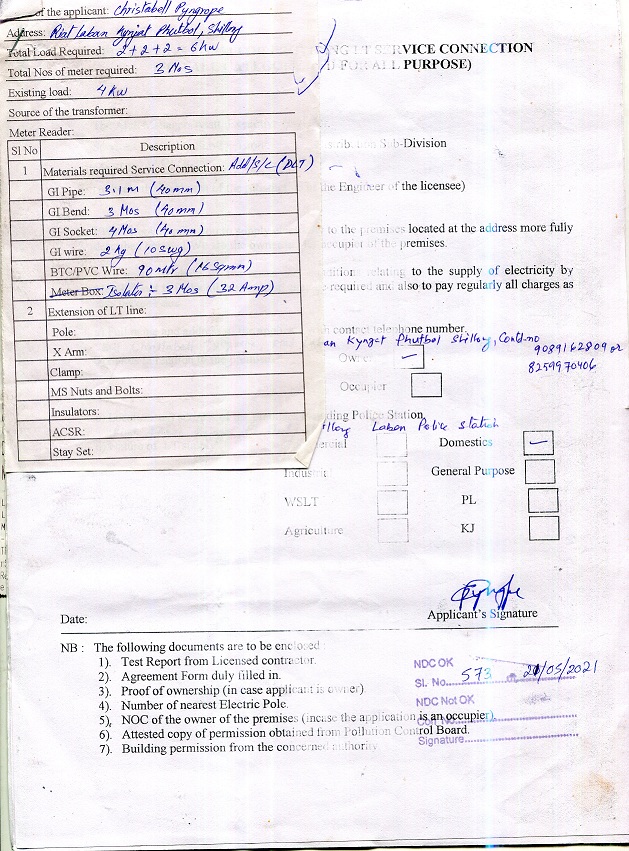 of the applicant: Christabell Pyngrope
Address: Riat Laban Kynjat Phutbol, Shillong
Total Load Required: 2+2+2 = 6 KW
Total Nos of meter required: 3 Nos
Existing load: 4 KW
Source of the transformer:
Meter Reader:
Sl No Description
1 Materials required Service Connection: Add/S/C (DLT)
GI Pipe: 3.1 m (40mm)
GI Bend: 3 Nos (40mm)
GI Socket: 4 Nos (40 mm)
GI wire: 2 kg (10 Swg)
BTC/PVC Wire: 90 mtr (16 Sqmm)
Meter Box: Isolator :- 3 Nos (32 Amp)
2 Extension of LT line:
Pole:
X Arm:
Clamp:
MS Nuts and Bolts:
Insulators:
ACSR:
Stay Set:
NG LT SERVICE CONNECTION
FOR ALL PURPOSE)
Sub-Division
the Engineer of the licensee)
to the premises located at the address more fully
occupier of the premises.
relating to the supply of electricity by
required and also to pay regularly all charges as
contact telephone number.
an Kynjat Phutbol Shillong, Contd.no
9089162809 or
8259970406
Owner
Occupier
ding Police Station
illong Laban Police station
ercial Domestics
Industrial General Purpose
WSLT PL
Agriculture KJ
Date:
Applicant's Signature
NB : The following documents are to be enclosed :
1). Test Report from Licensed contractor.
2). Agreement Form duly filled in.
3). Proof of ownership (in case applicant is owner)
4). Number of nearest Electric Pole.
5), NOC of the owner of the premises (incase the application is an occupier).
6). Attested copy of permission obtained from Pollution Control Board.
7). Building permission from the concerned authority
NDC OK
Sl. No. 573 21/05/2021
NDC Not OK
Con. No.
Signature